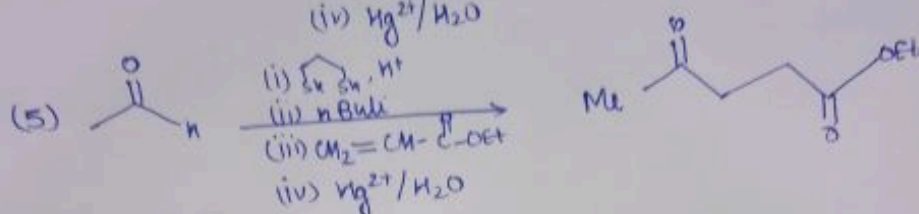 (iv) Hg²⁺/H₂O
O
(5) H
(i) SH SH, H⁺
(ii) nBuLi
(iii) CH₂=CH-C-OEt
O
(iv) Hg²⁺/H₂O
O
Me OEt
O